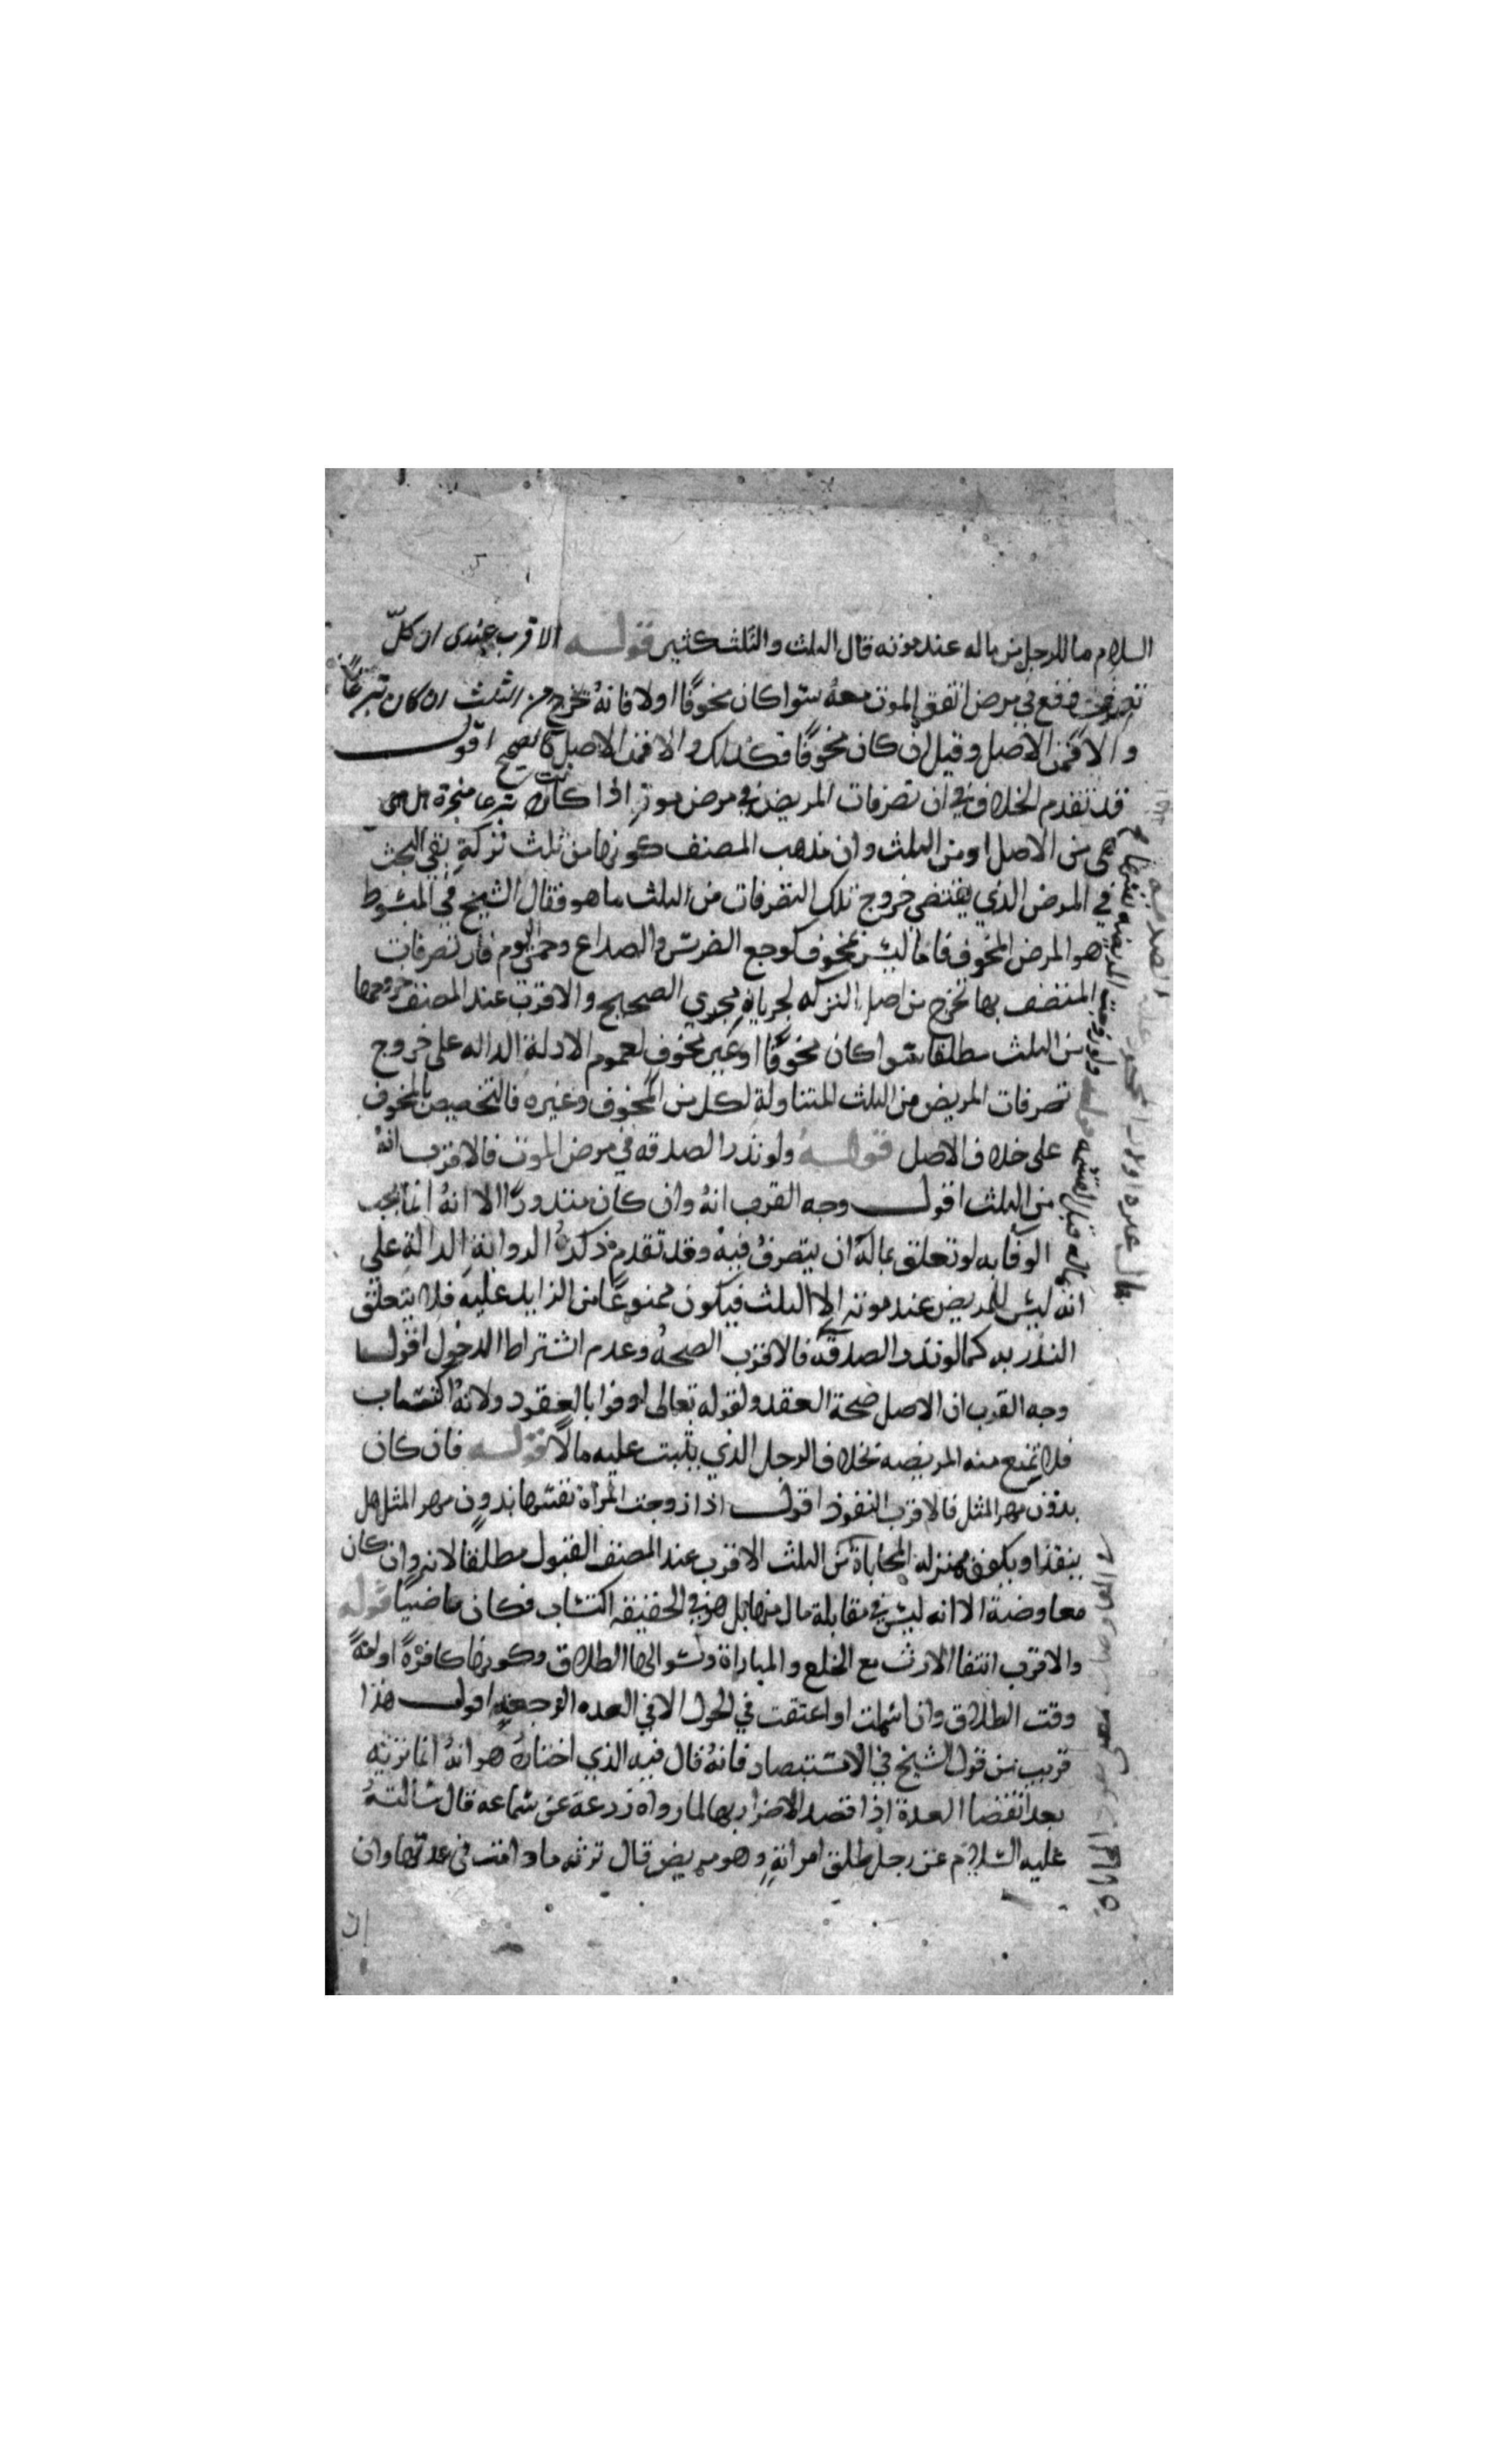 السلام ما للرجل من ماله عند موته قال الثلث والثلث كثير قوله الاقرب عندى ان كلّ
تصرف وقع في مرض اتفق الموت معه سوا كان مخوفًا اولا فانه يخرج من الثلث ان كان تبرعًا
والا فمن الاصل وقيل ان كان مخوفًا فكذلك والا فمن الاصل كالصحيح اقول
قد تقدم الخلاف في ان تصرفات المريض في مرض موته اذا كانت تبرعا منجزة هل هى
هى من الاصل او من الثلث وان مذهب المصنف كونها من ثلث تركته بقى البحث
في المرض الذي يقتضى خروج تلك التصرفات من الثلث ما هو فقال الشيخ في المبسوط
هو المرض المخوف فاما ليس بمخوف كوجع الضرس والصداع وحمى اليوم فان تصرفات
المتصف بها تخرج من اصل التركه لجريانه مجرى الصحيح والاقرب عند المصنف خروجها
من الثلث مطلقا سوا كان مخوفًا او غير مخوف لعموم الادلة الداله على خروج
تصرفات المريض من الثلث المتناولة لكل من المخوف وغيره فالتخصيص بالمخوف
على خلاف الاصل قوله ولو نذر الصدقه في مرض الموت فالاقرب انه
من الثلث اقول وجه القرب انه وان كان منذورًا الا انه انما يجب
الوفا به لو تعلق بماله ان يتصرف فيه وقد تقدم ذكر الرواية الدالة على
انه ليس للمريض عند موته الا الثلث فيكون ممنوعًا من الزايد عليه فلا يتعلق
النذر به كما لو نذر الصدقة فالاقرب الصحه وعدم اشتراط الدخول اقول
وجه القرب ان الاصل صحة العقد ولقوله تعالى اوفوا بالعقود ولانه اكتساب
فلا تمنع منه المريضه بخلاف الرجل الذي يثبت عليه مالًا قوله فان كان
بدون مهر المثل فالاقرب النفوذ اقول اذا زوجت المراة نفسها بدون مهر المثل هل
ينفذ او يكون بمنزله المحاباة من الثلث الاقرب عند المصنف القبول مطلقا لانه وان كان
معاوضة الا انه ليس في مقابلة مال منها بل هو في الحقيقه اكتساب فكان ماضيًا قوله
والاقرب انتفا الارث مع الخلع والمباراة وسوالها الطلاق وكونها كافرة او امةً
وقت الطلاق وان اسلمت او اعتقت في الحول الا في العده الرجعيه اقول هذا
قريب من قول الشيخ في الاستبصار فانه قال فيه الذي اختاره هو انه انما ترثه
بعد انقضا العدة اذا قصد الاضرار بها لما رواه زرعة عن سماعه قال سالته
عليه السلام عن رجل طلق امراته وهو مريض قال ترثه ما دامت في عدتها وان